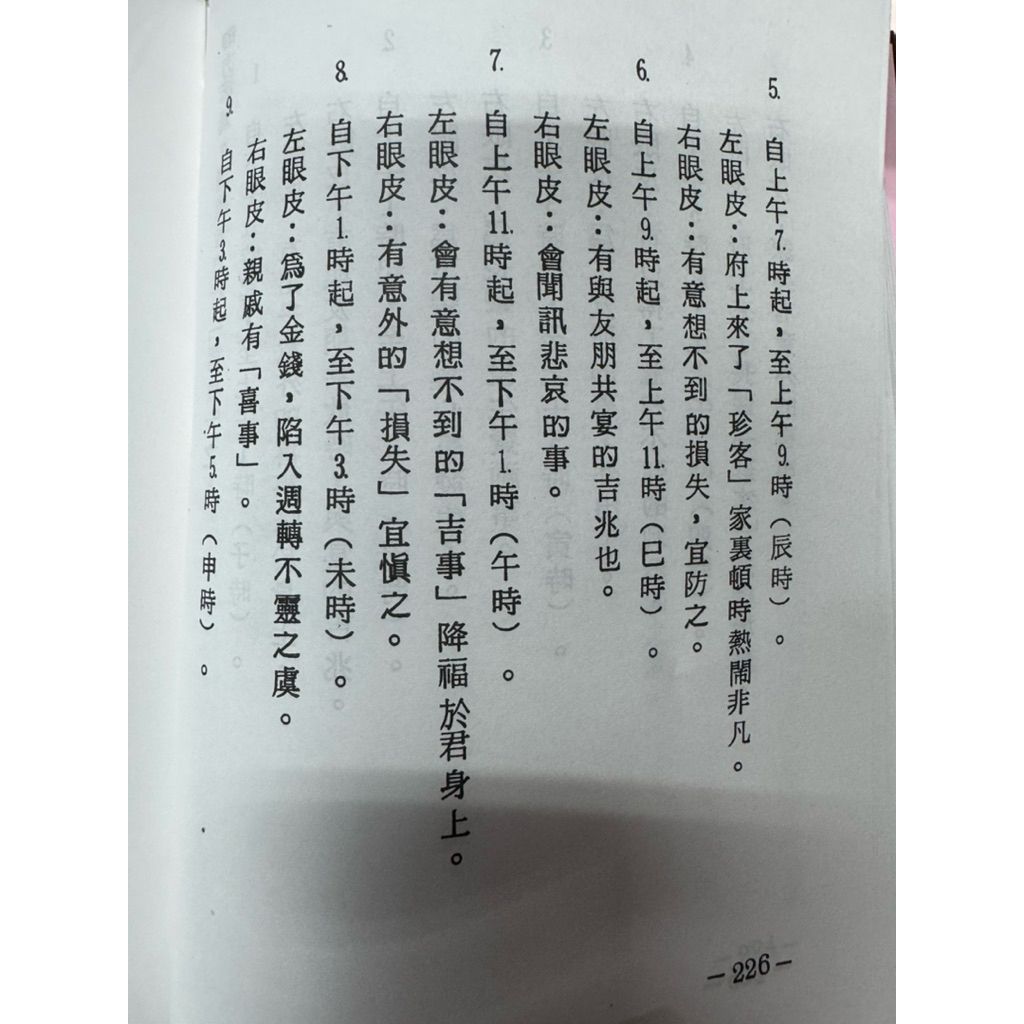 5. 自上午7.時起，至上午9.時（辰時）。
左眼皮：府上來了「珍客」家裏頓時熱鬧非凡。
右眼皮：有意想不到的損失，宜防之。
6. 自上午9.時起，至上午11.時（巳時）。
左眼皮：有與友朋共宴的吉兆也。
右眼皮：會聞訊悲哀的事。
7. 自上午11.時起，至下午1.時（午時）。
左眼皮：會有意想不到的「吉事」降福於君身上。
右眼皮：有意外的「損失」宜慎之。
8. 自下午1.時起，至下午3.時（未時）。
左眼皮：爲了金錢，陷入週轉不靈之虞。
右眼皮：親戚有「喜事」。
9. 自下午3.時起，至下午5.時（申時）。
－226－